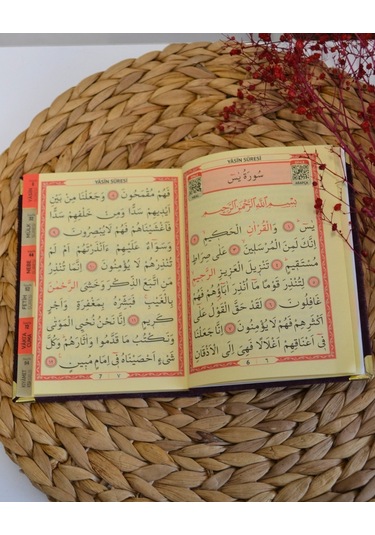 YÂSİN SÛRESİ
سُورَةُ يٰسٓ
بِسْمِ اللّٰهِ الرَّحْمٰنِ الرَّحِيمِ
يٰسٓ ۝ وَالْقُرْاٰنِ الْحَكِيمِ ۝
اِنَّكَ لَمِنَ الْمُرْسَلِينَ ۝ عَلٰى صِرَاطٍ
مُسْتَقِيمٍ ۝ تَنْزِيلَ الْعَزِيزِ الرَّحِيمِ ۝
لِتُنْذِرَ قَوْمًا مَٓا اُنْذِرَ اٰبَٓاؤُهُمْ فَهُمْ
غَافِلُونَ ۝ لَقَدْ حَقَّ الْقَوْلُ عَلٰٓى
اَكْثَرِهِمْ فَهُمْ لَا يُؤْمِنُونَ ۝ اِنَّا جَعَلْنَا
فِٓى اَعْنَاقِهِمْ اَغْلَالًا فَهِىَ اِلَى الْاَذْقَانِ
6 ٦
YÂSİN SÛRESİ
فَهُمْ مُقْمَحُونَ ۝ وَجَعَلْنَا مِنْ بَيْنِ
اَيْدِيهِمْ سَدًّا وَمِنْ خَلْفِهِمْ سَدًّا
فَاَغْشَيْنَاهُمْ فَهُمْ لَا يُبْصِرُونَ ۝
وَسَوَٓاءٌ عَلَيْهِمْ ءَاَنْذَرْتَهُمْ اَمْ لَمْ
تُنْذِرْهُمْ لَا يُؤْمِنُونَ ۝ اِنَّمَا تُنْذِرُ
مَنِ اتَّبَعَ الذِّكْرَ وَخَشِىَ الرَّحْمٰنَ
بِالْغَيْبِ فَبَشِّرْهُ بِمَغْفِرَةٍ وَاَجْرٍ
كَرِيمٍ ۝ اِنَّا نَحْنُ نُحْيِ الْمَوْتٰى
وَنَكْتُبُ مَا قَدَّمُوا وَاٰثَارَهُمْ وَكُلَّ
شَىْءٍ اَحْصَيْنَاهُ فِٓى اِمَامٍ مُبِينٍ ۝
7 ٧
YASİN
MÜLK
NEBE
FETİH